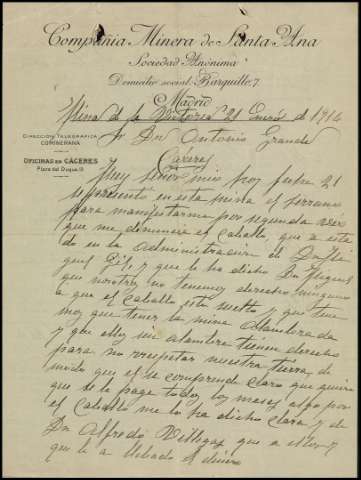 Compañia Minera de Santa Ana
Sociedad Anónima
Domicilio social: Barquillo, 7
Madrid
Mina de la Victoria 21 Enero de 1916
Sr Dn Antonio Grande
DIRECCIÓN TELEGRÁFICA
COMINERANA
Cáceres
OFICINAS EN CÁCERES
Plaza del Duque, 9
Muy señor mio hoy fecha 21
se presento en esta mina el serrano
para manifestarme por segunda vez
que me denuncia el caballo, que a esta
do en la Administracion de Dn
Gil, y que le ha dicho Dn Miguel
que nosotros no tenemos derecho ninguno
a que el caballo este suelto y que tene
mos que tener la mina alambrada
y que ellos sin alambre tienen derecho
para no respetar nuestra tierra, de
modo que el se comprende claro que quiere
que se le page todos los meses algo por
el caballo me lo ha dicho claro y de
Dn Alfredo Villegas que a ellos y
que le a el dinero